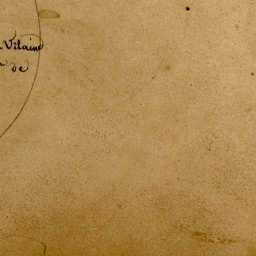 Vilaine
de